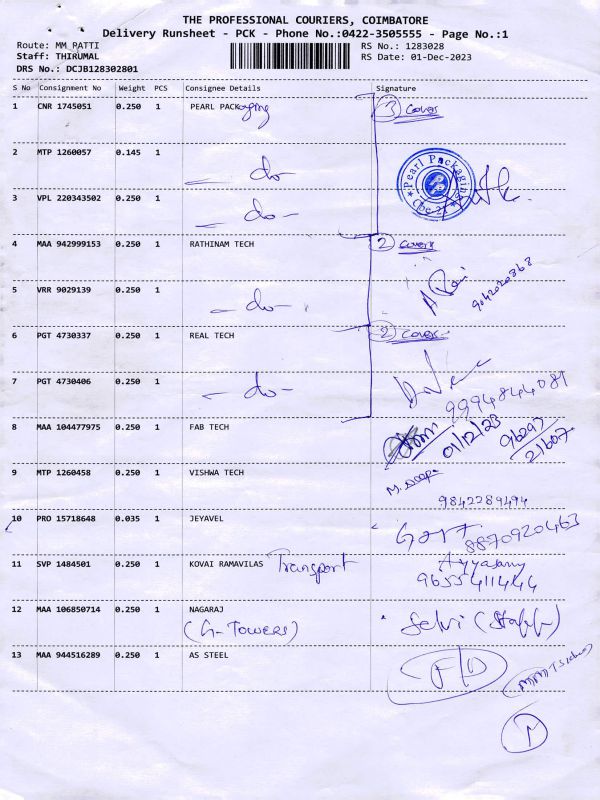 THE PROFESSIONAL COURIERS, COIMBATORE
Delivery Runsheet - PCK - Phone No.:0422-3505555 - Page No.:1
Route: MM PATTI
RS No.: 1283028
Staff: THIRUMAL
RS Date: 01-Dec-2023
DRS No.: DCJB128302801
S No Consignment No Weight PCS Consignee Details Signature
1 CNR 1745051 0.250 1 PEARL PACKaging 3 Covers
2 MTP 1260057 0.145 1 - do -
Pearl Packaging
Cbe-21
3 VPL 220343502 0.250 1 - do -
4 MAA 942999153 0.250 1 RATHINAM TECH 2 Covers
5 VRR 9029139 0.250 1 - do -
6 PGT 4730337 0.250 1 REAL TECH 2 Cover
7 PGT 4730406 0.250 1 - do -
9994844081
8 MAA 104477975 0.250 1 FAB TECH 01/12/23 96297
21607
9 MTP 1260458 0.250 1 VISHWA TECH
9842289494
10 PRO 15718648 0.035 1 JEYAVEL
8870920463
11 SVP 1484501 0.250 1 KOVAI RAMAVILAS Transport Ayyasamy
9655411444
12 MAA 106850714 0.250 1 NAGARAJ Selvi (Staff)
(G-TOWERS)
13 MAA 944516289 0.250 1 AS STEEL
M